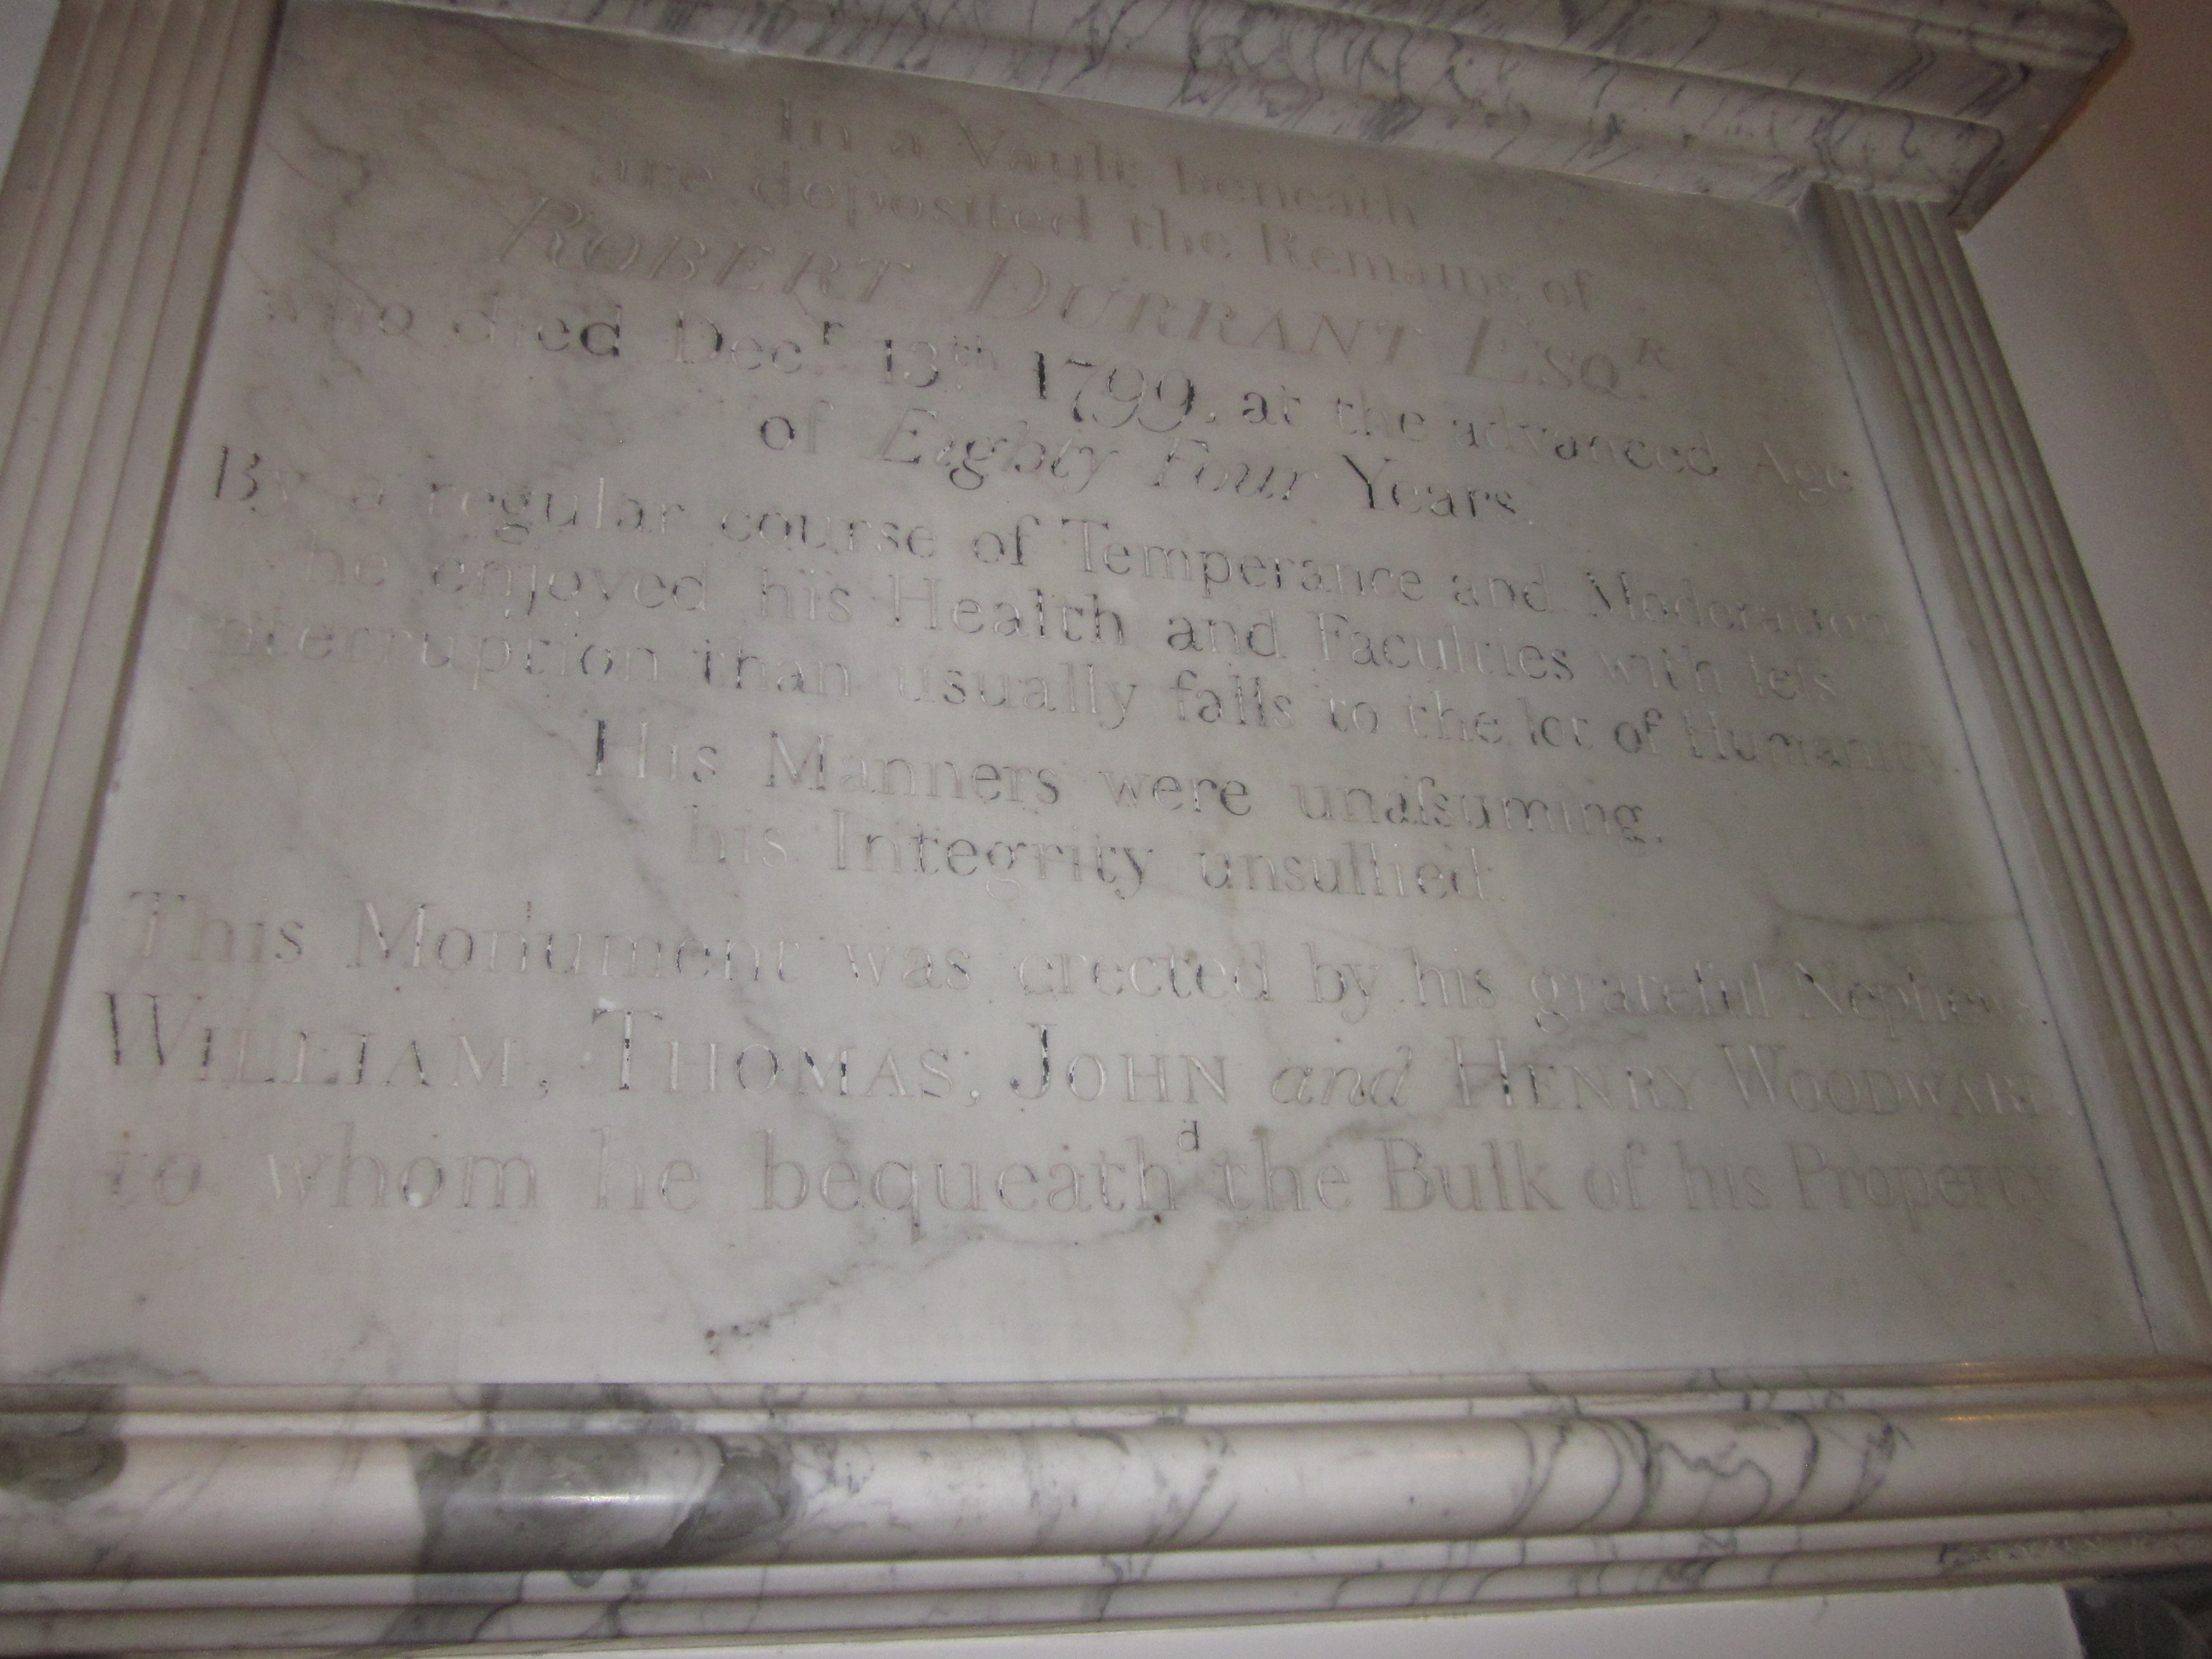 In a Vault beneath
are deposited the Remains of
ROBERT DURRANT ESQ.R
who died Dec.r 13th 1799, at the advanced Age
of Eighty Four Years.
By a regular course of Temperance and Moderation
he enjoyed his Health and Faculties with leſs
interruption than usually falls to the lot of Humanity.
His Manners were unaſsuming,
his Integrity unsullied.
This Monument was erected by his grateful Nephews,
WILLIAM, THOMAS, JOHN and HENRY WOODWARD,
to whom he bequeath'd the Bulk of his Property